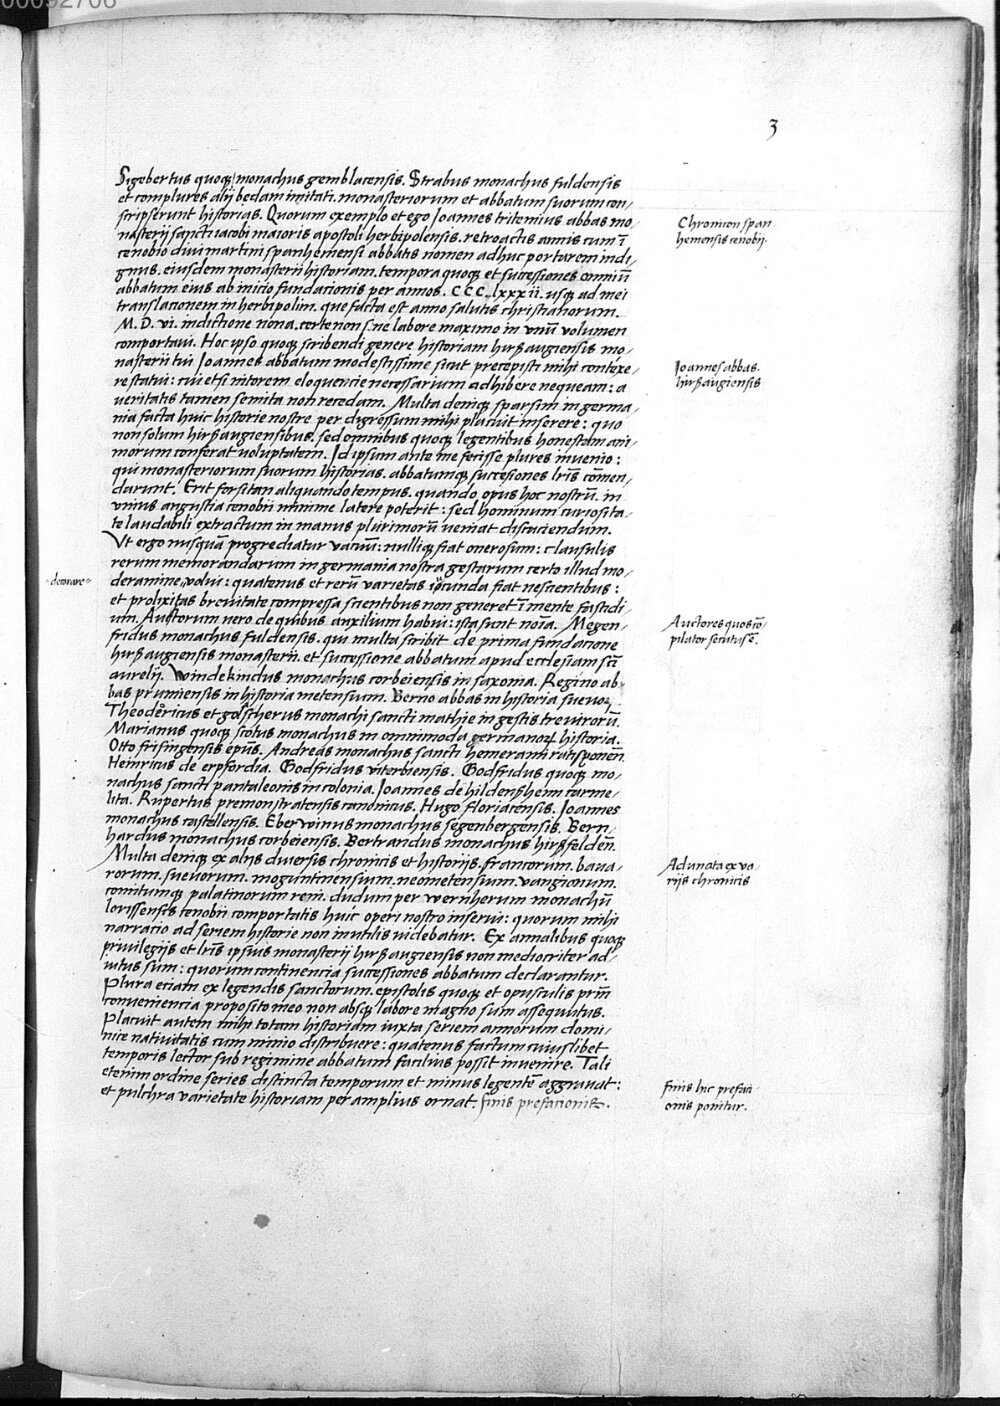 00092706
3
Sigebertus quoqꝫ monachus gemblacensis. Strabus monachus fuldensis
et complures alij bedam imitati. monasteriorum et abbatum suorum con,
scripserunt historias. Quorum exemplo et ego Joannes tritemius abbas mo,
nasterij sancti iacobi maioris apostoli herbipolensis. retroactis annis cum ī
cenobio diui martini spanhemensi abbatis nomen adhuc portarem indi,
gnus. eiusdem monasterii historiam. tempora quoqꝫ et successiones omniū
abbatum eius ab inicio fundationis per annos. CCC. lxxxii. usqꝫ ad mei
translationem in herbipolim. que facta est anno salutis christianorum.
M.D.vi. indictione nona. certe non sine labore maximo in vnū volumen
comportaui. Hoc ipso quoqꝫ scribendi genere historiam hirßaugiensis mo,
nasterii tui Joannes abbatum modestissime sicut precepisti mihi contexe,
re statui: cui etsi nitorem eloquencie necessarium adhibere nequeam: a
ueritatis tamen semita non recedam. Multa deniqꝫ sparsim in germa,
nia facta huic historie nostre per digressum mihi placuit inserere: quo
non solum hirßaugiensibus. sed omnibus quoqꝫ legentibus honestam ani,
morum conferat voluptatem. Id ipsum ante me fecisse plures inuenio:
qui monasteriorum suorum historias. abbatumqꝫ successiones lr̄is cōmen,
darunt. Erit forsitan aliquando tempus. quando opus hoc nostrū. in
vnius angustia cenobii minime latere poterit: sed hominum curiosita,
te laudabili extractum in manus plurimorū ueniat discuciendum.
Vt ergo nusquā progrediatur vacuū: nulliqꝫ fiat onerosum: clausulis
rerum memorandarum in germania nostra gestarum certo illud mo,
deramine volui: quatenus et rerū varietas iocunda fiat nescientibus:
- decorare -
et prolixitas breuitate compressa scientibus non generet ī mente fastidi,
um. Auctorum uero de quibus auxilium habui: ista sunt noīa. Megen,
fridus monachus fuldensis. qui multa scribit de prima fundatione
hirßaugiensis monasterii. et successione abbatum apud ecclesiam scī
aurelii. Windekindus monachus corbeiensis in saxonia. Regino ab,
bas prumiensis in historia metensium. Berno abbas in historia sueuoꝝ.
Theodericus et golscherus monachi sancti mathie in gestis treuirorū.
Marianus quoqꝫ scotus monachus in omnimoda germanoꝝ historia.
Otto frisingensis ep̄us. Andreas monachus sancti hemerami ratisponen̄.
Heinricus de erpfordia. Godfridus viterbiensis. Godfridus quoqꝫ mo,
nachus sancti pantaleonis in colonia. Joannes de hildenßheim carme,
lita. Rupertus premonstratensis canonicus. Hugo floriacensis. Joannes
monachus castellensis. Eberwinus monachus segenbergensis. Bern,
hardus monachus corbeiensis. Bertrandus monachus hirßfelden̄.
Multa deniqꝫ ex alijs diuersis chronicis et historijs. francorum. baua,
rorum. sueuorum. moguntinensium. neometensium. vangionum.
comitumqꝫ palatinorum reni. dudum per wernherum monachū
lorissensis cenobii comportatis huic operi nostro inserui: quorum mihi
narratio ad seriem historie non inutilis uidebatur. Ex annalibus quoqꝫ
priuilegijs et lr̄is ipsius monasterii hirßaugiensis non mediocriter ad,
iutus sum: quorum continencia successiones abbatum declarantur.
Plura eciam ex legendis sanctorum. epistolis quoqꝫ et opusculis prm̄
conueniencia proposito meo non absqꝫ labore magno sum assequutus.
Placuit autem mihi totam historiam iuxta seriem annorum domi,
nice natiuitatis cum minio distribuere: quatenus factum cuiuslibet
temporis lector sub regimine abbatum facilius possit inuenire. Tali
etenim ordine series distincta temporum et minus legentē aggrauat:
et pulchra varietate historiam per amplius ornat. finis prefacionis.
Chronicon span
hemensis cenobij.
Joannes abbas.
hirßaugiensis
Auctores quos cō,
pilator secutus ē.
Adunata ex va,
rijs chronicis
finis hic prefaci,
onis ponitur.